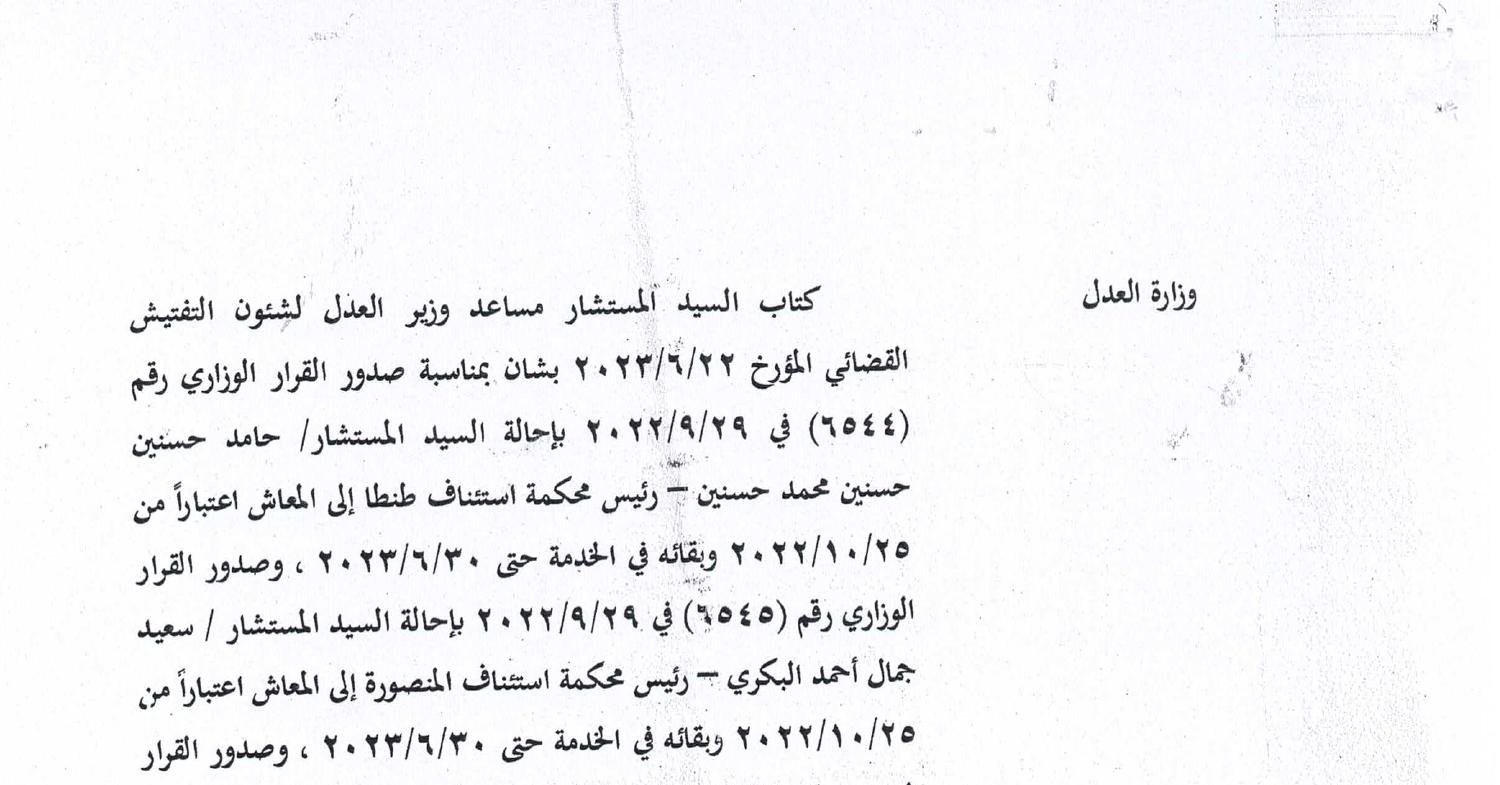 وزارة العدل
كتاب السيد المستشار مساعد وزير العدل لشئون التفتيش
القضائي المؤرخ ٢٠٢٣/٦/٢٢ بشان بمناسبة صدور القرار الوزاري رقم
(٦٥٤٤) في ٢٠٢٢/٩/٢٩ بإحالة السيد المستشار/ حامد حسنين
حسنين محمد حسنين – رئيس محكمة استئناف طنطا إلى المعاش اعتباراً من
٢٠٢٢/١٠/٢٥ وبقائه في الخدمة حتى ٢٠٢٣/٦/٣٠ ، وصدور القرار
الوزاري رقم (٦٥٤٥) في ٢٠٢٢/٩/٢٩ بإحالة السيد المستشار / سعيد
جمال أحمد البكري – رئيس محكمة استئناف المنصورة إلى المعاش اعتباراً من
٢٠٢٢/١٠/٢٥ وبقائه في الخدمة حتى ٢٠٢٣/٦/٣٠ ، وصدور القرار